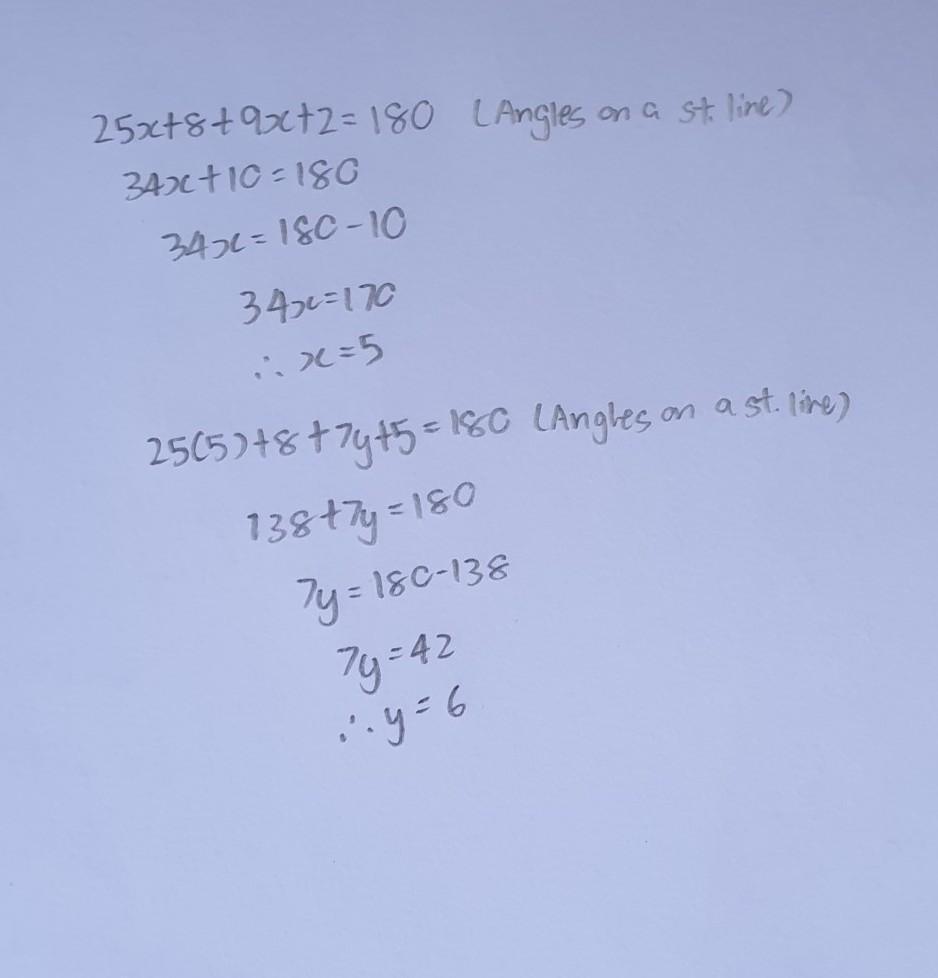 25x+8+9x+2=180 (Angles on a st. line)
34x+10=180
34x=180-10
34x=170
∴ x=5
25(5)+8+7y+5=180 (Angles on a st. line)
138+7y=180
7y=180-138
7y=42
∴ y=6